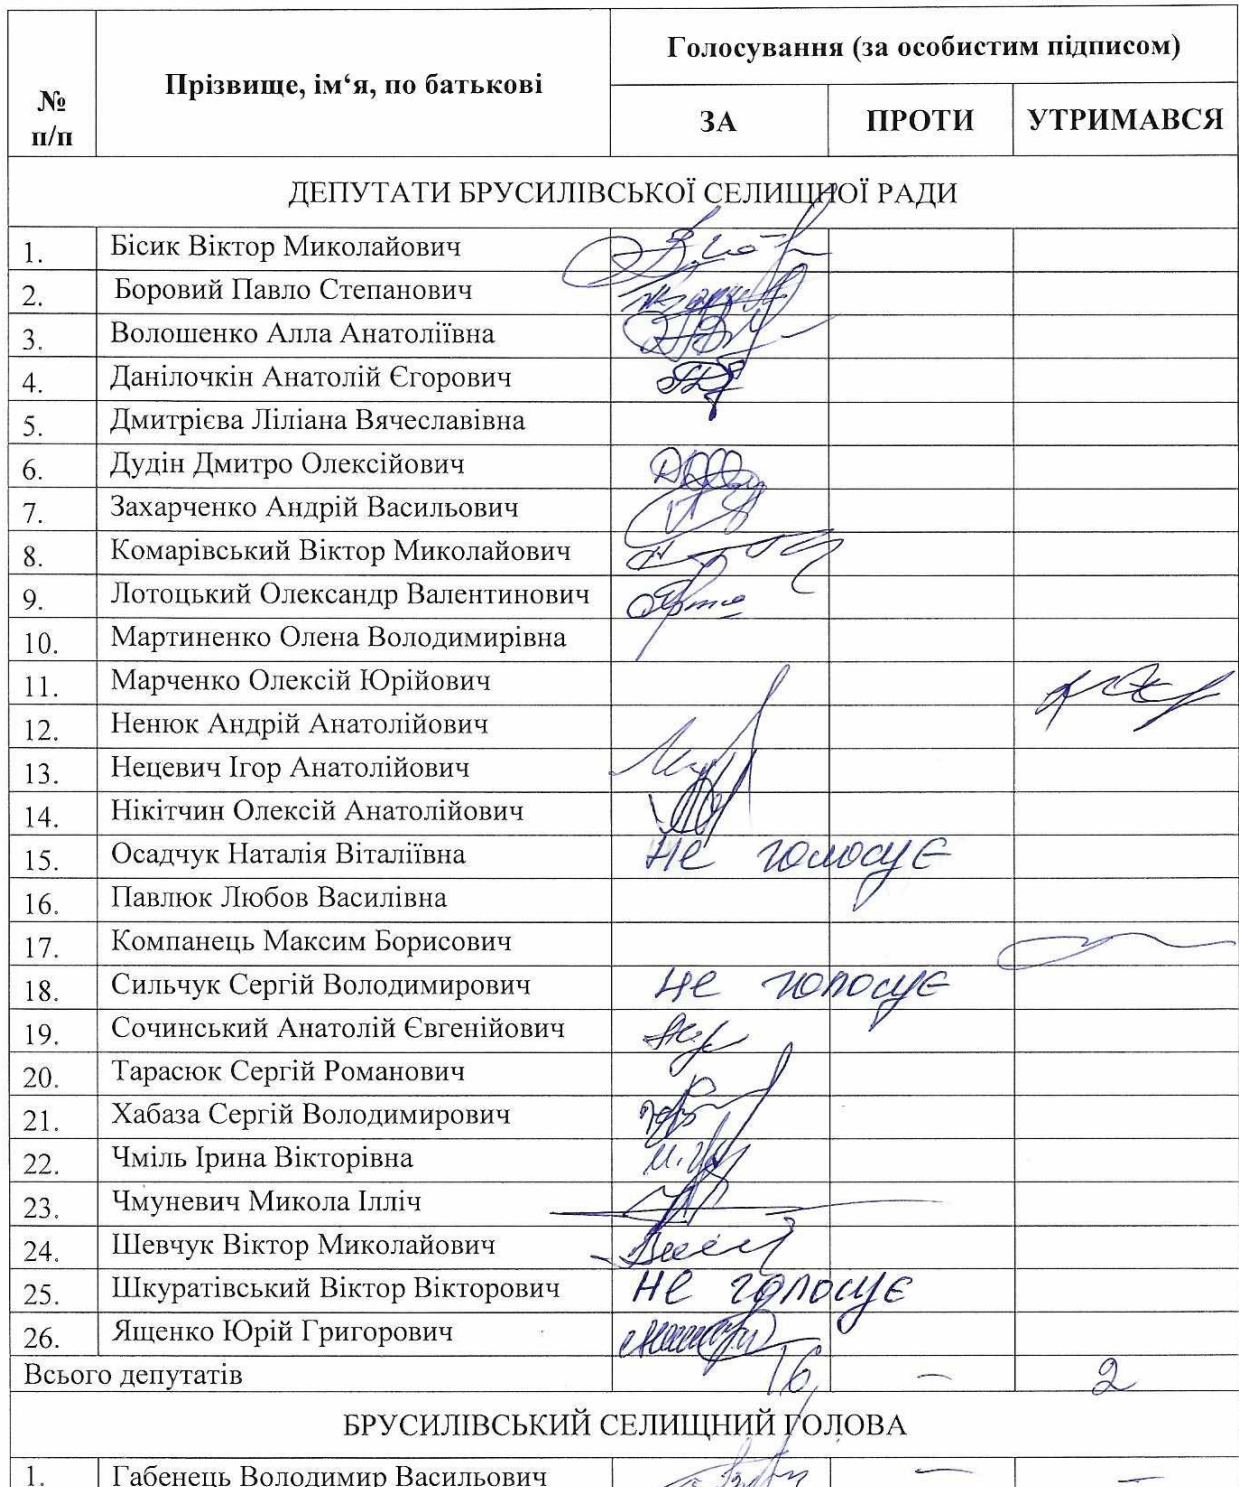 № п/п Прізвище, ім‘я, по батькові Голосування (за особистим підписом)
ЗА ПРОТИ УТРИМАВСЯ
ДЕПУТАТИ БРУСИЛІВСЬКОЇ СЕЛИЩНОЇ РАДИ
1. Бісик Віктор Миколайович
2. Боровий Павло Степанович
3. Волошенко Алла Анатоліївна
4. Данілочкін Анатолій Єгорович
5. Дмитрієва Ліліана Вячеславівна
6. Дудін Дмитро Олексійович
7. Захарченко Андрій Васильович
8. Комарівський Віктор Миколайович
9. Лотоцький Олександр Валентинович
10. Мартиненко Олена Володимирівна
11. Марченко Олексій Юрійович
12. Ненюк Андрій Анатолійович
13. Нецевич Ігор Анатолійович
14. Нікітчин Олексій Анатолійович
15. Осадчук Наталія Віталіївна не голосує
16. Павлюк Любов Василівна
17. Компанець Максим Борисович
18. Сильчук Сергій Володимирович не голосує
19. Сочинський Анатолій Євгенійович
20. Тарасюк Сергій Романович
21. Хабаза Сергій Володимирович
22. Чміль Ірина Вікторівна
23. Чмуневич Микола Ілліч
24. Шевчук Віктор Миколайович
25. Шкуратівський Віктор Вікторович не голосує
26. Ященко Юрій Григорович
Всього депутатів 16 — 2
БРУСИЛІВСЬКИЙ СЕЛИЩНИЙ ГОЛОВА
1. Габенець Володимир Васильович — —